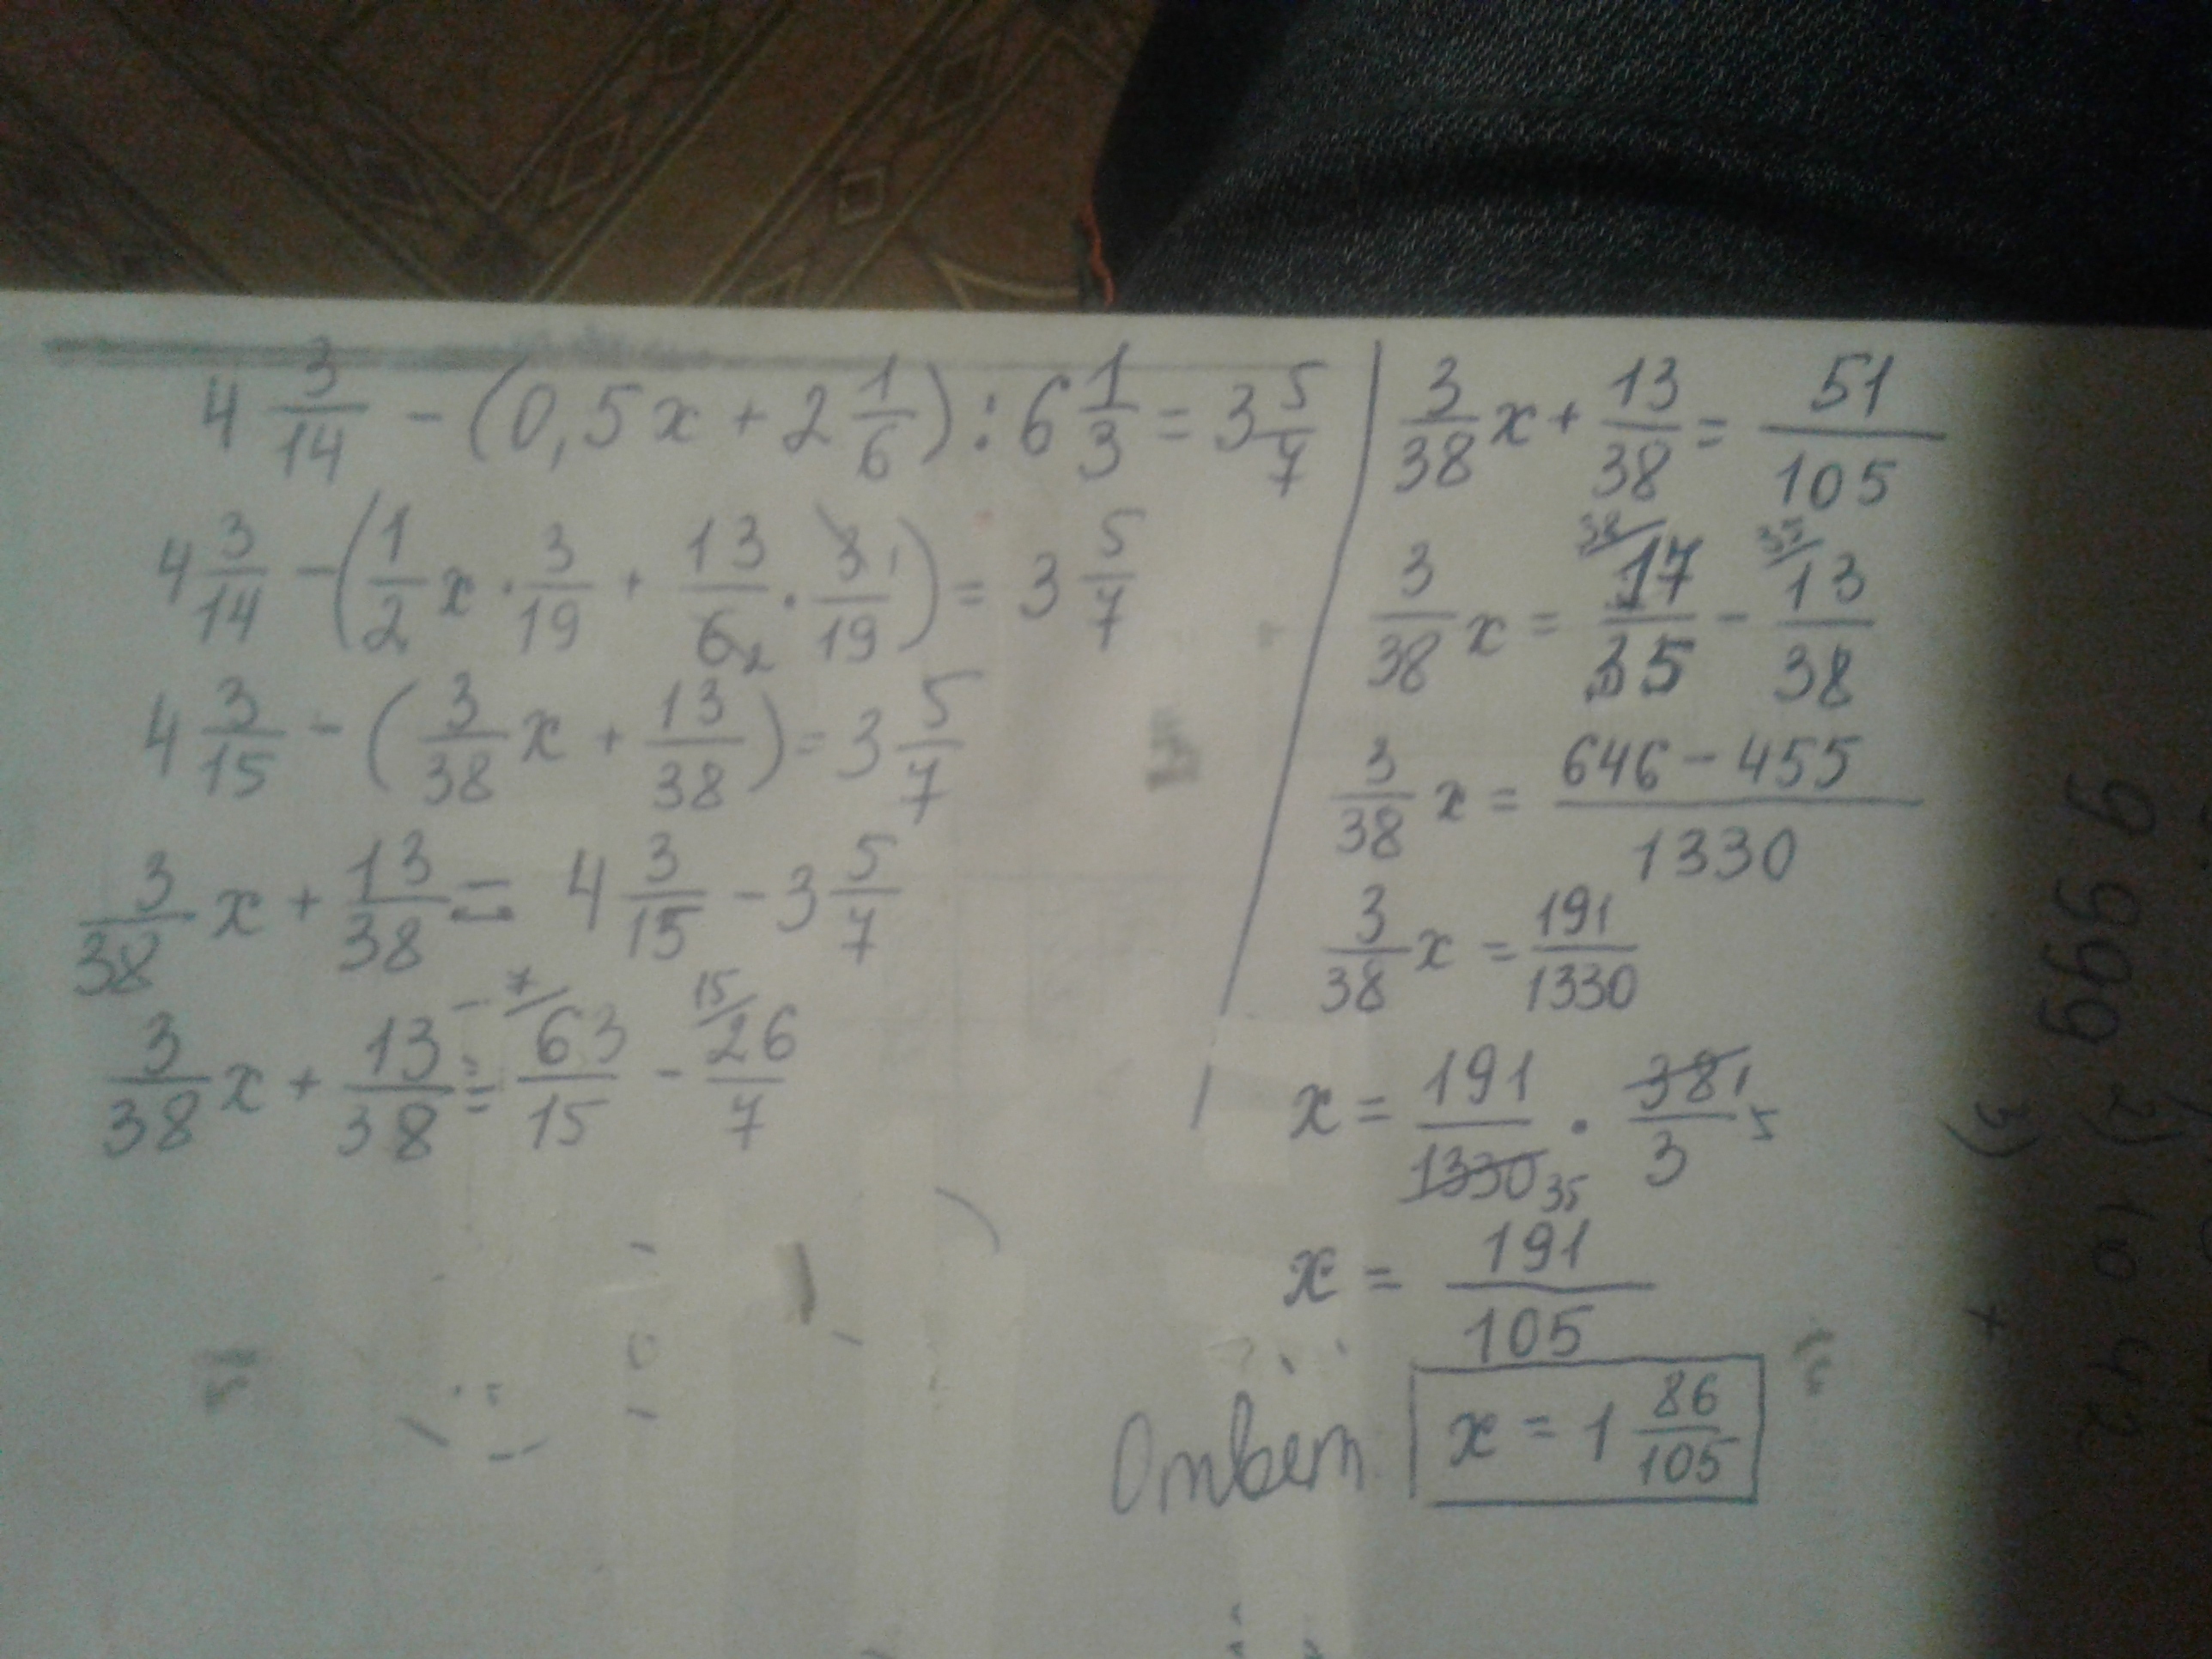 4 3/14 - (0,5x + 2 1/6) : 6 1/3 = 3 5/7
4 3/14 - (1/2 x · 3/19 + 13/6 2 · 3 1/19) = 3 5/7
4 3/15 - (3/38 x + 13/38) = 3 5/7
3/38 x + 13/38 = 4 3/15 - 3 5/7
3/38 x + 13/38 = 7/ 63/15 - 15/ 26/7
3/38 x + 13/38 = 51/105
3/38 x = 38/ 17/35 - 35/ 13/38
3/38 x = 646 - 455/1330
3/38 x = 191/1330
x = 191/1330 35 · 38 1/3
x = 191/105
Ответ x = 1 86/105